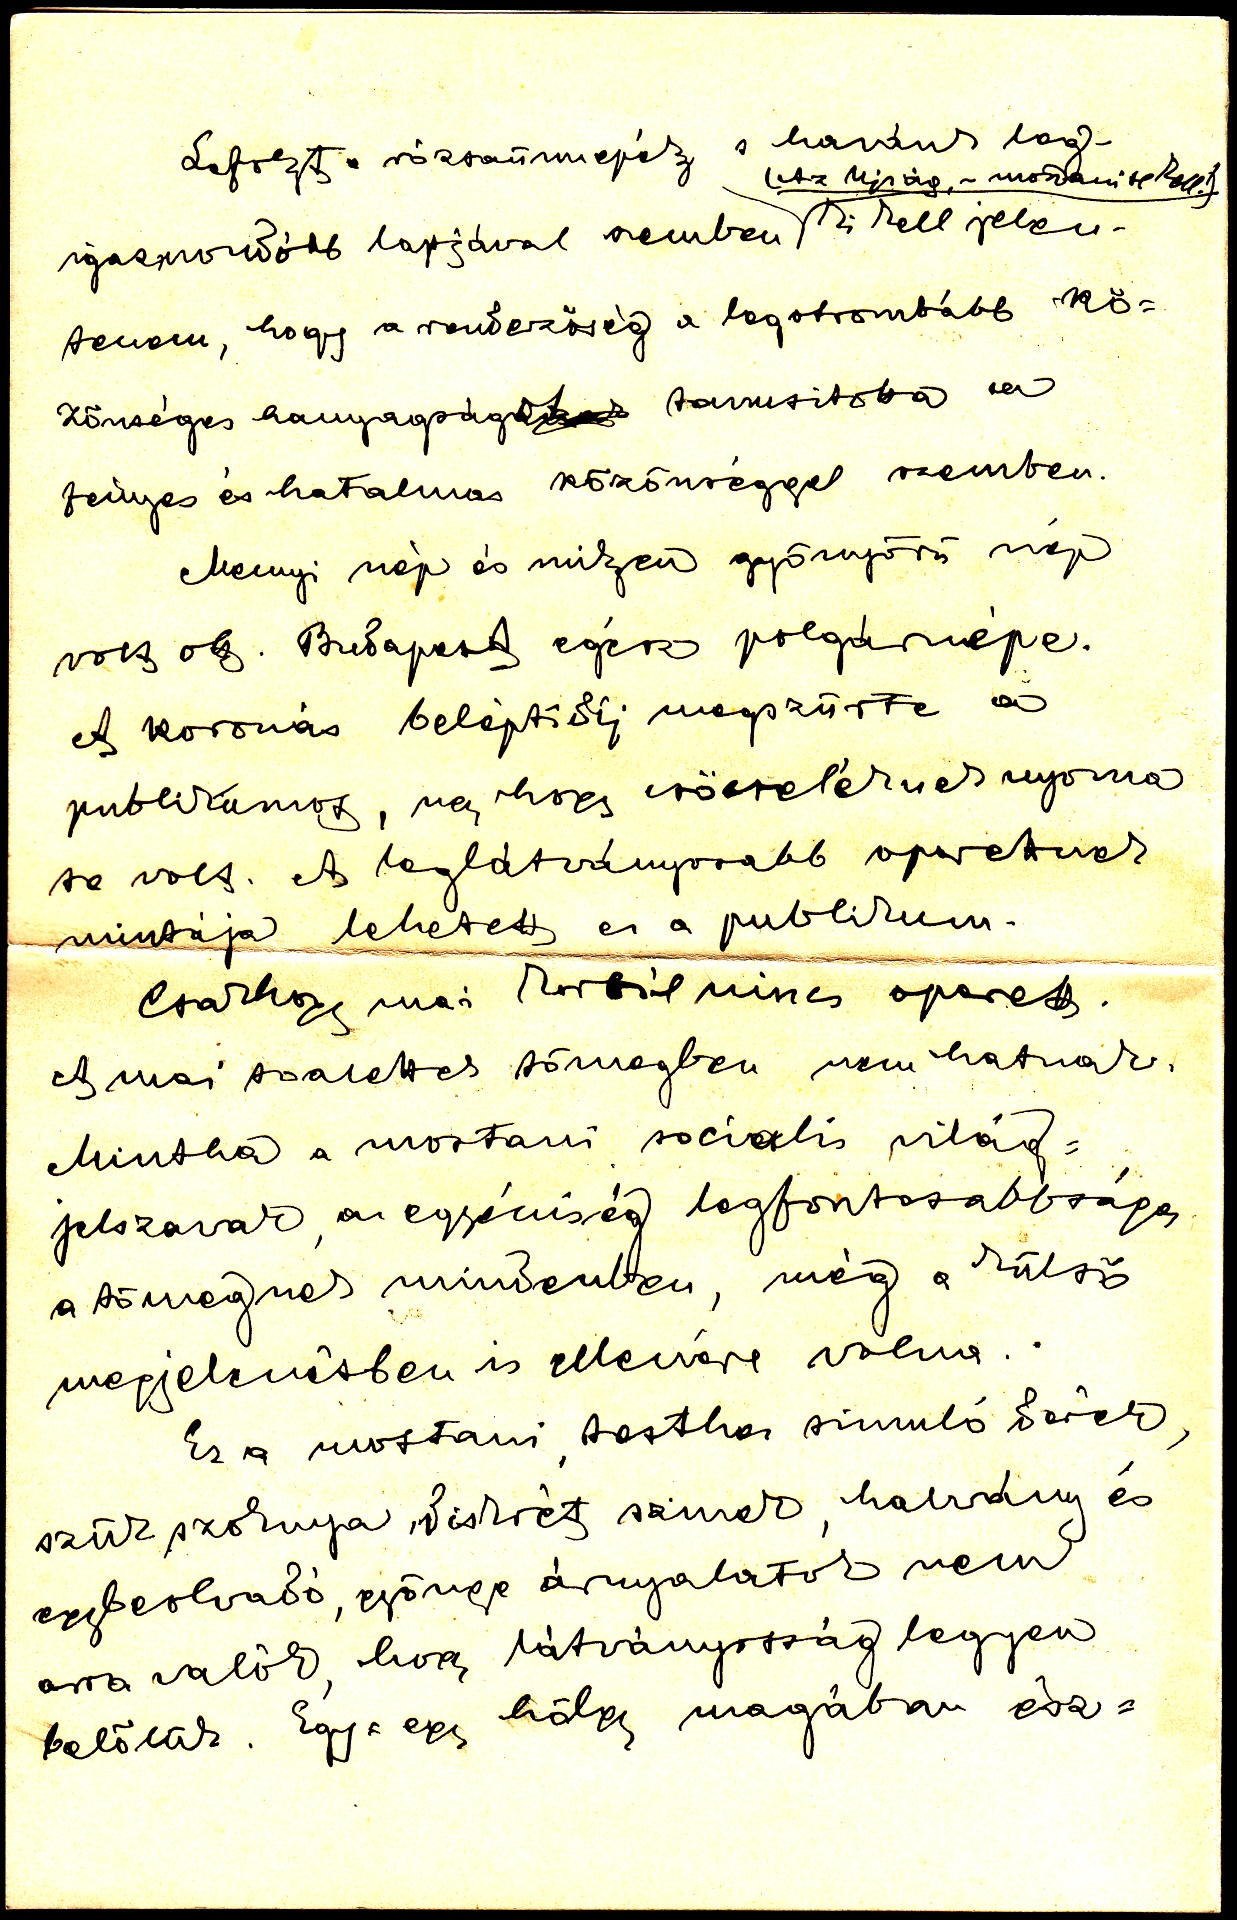 Lefolyt a rózsaünnepély s hazánk leg-
(Az Ujság, - mondani se kell!)
igazmondóbb lapjával szemben ki kell jelen-
tenem, hogy a rendezőség a legotrombább kö=
zönséges hanyagságot tanusitotta a
fényes és hatalmas közönséggel szemben.
Mennyi nép és milyen gyönyörü nép
volt ott. Budapest egész polgárnépe.
A koronás beléptidij megszürte a
publikumot, ugy hogy csöcseléknek nyoma
se volt. A leglátványosabb operettnek
mintája lehetett ez a publikum.
Csakhogy mai korból nincs operett.
A mai toalettek tömegben nem hatnak.
Mintha a mostani socialis világ=
jelszavak, az egyéniség legfontosabbsága
a tömegnek mindenben, még a külső
megjelenésben is ellenére volna.
Ez a mostani, testhez simuló derék,
szük szoknya, diskrét szinek, halvány és
egybeolvadó, gyönge árnyalatok nem
arra valók, hogy látványosság legyen
belőlük. Egy=egy hölgy magában ész=